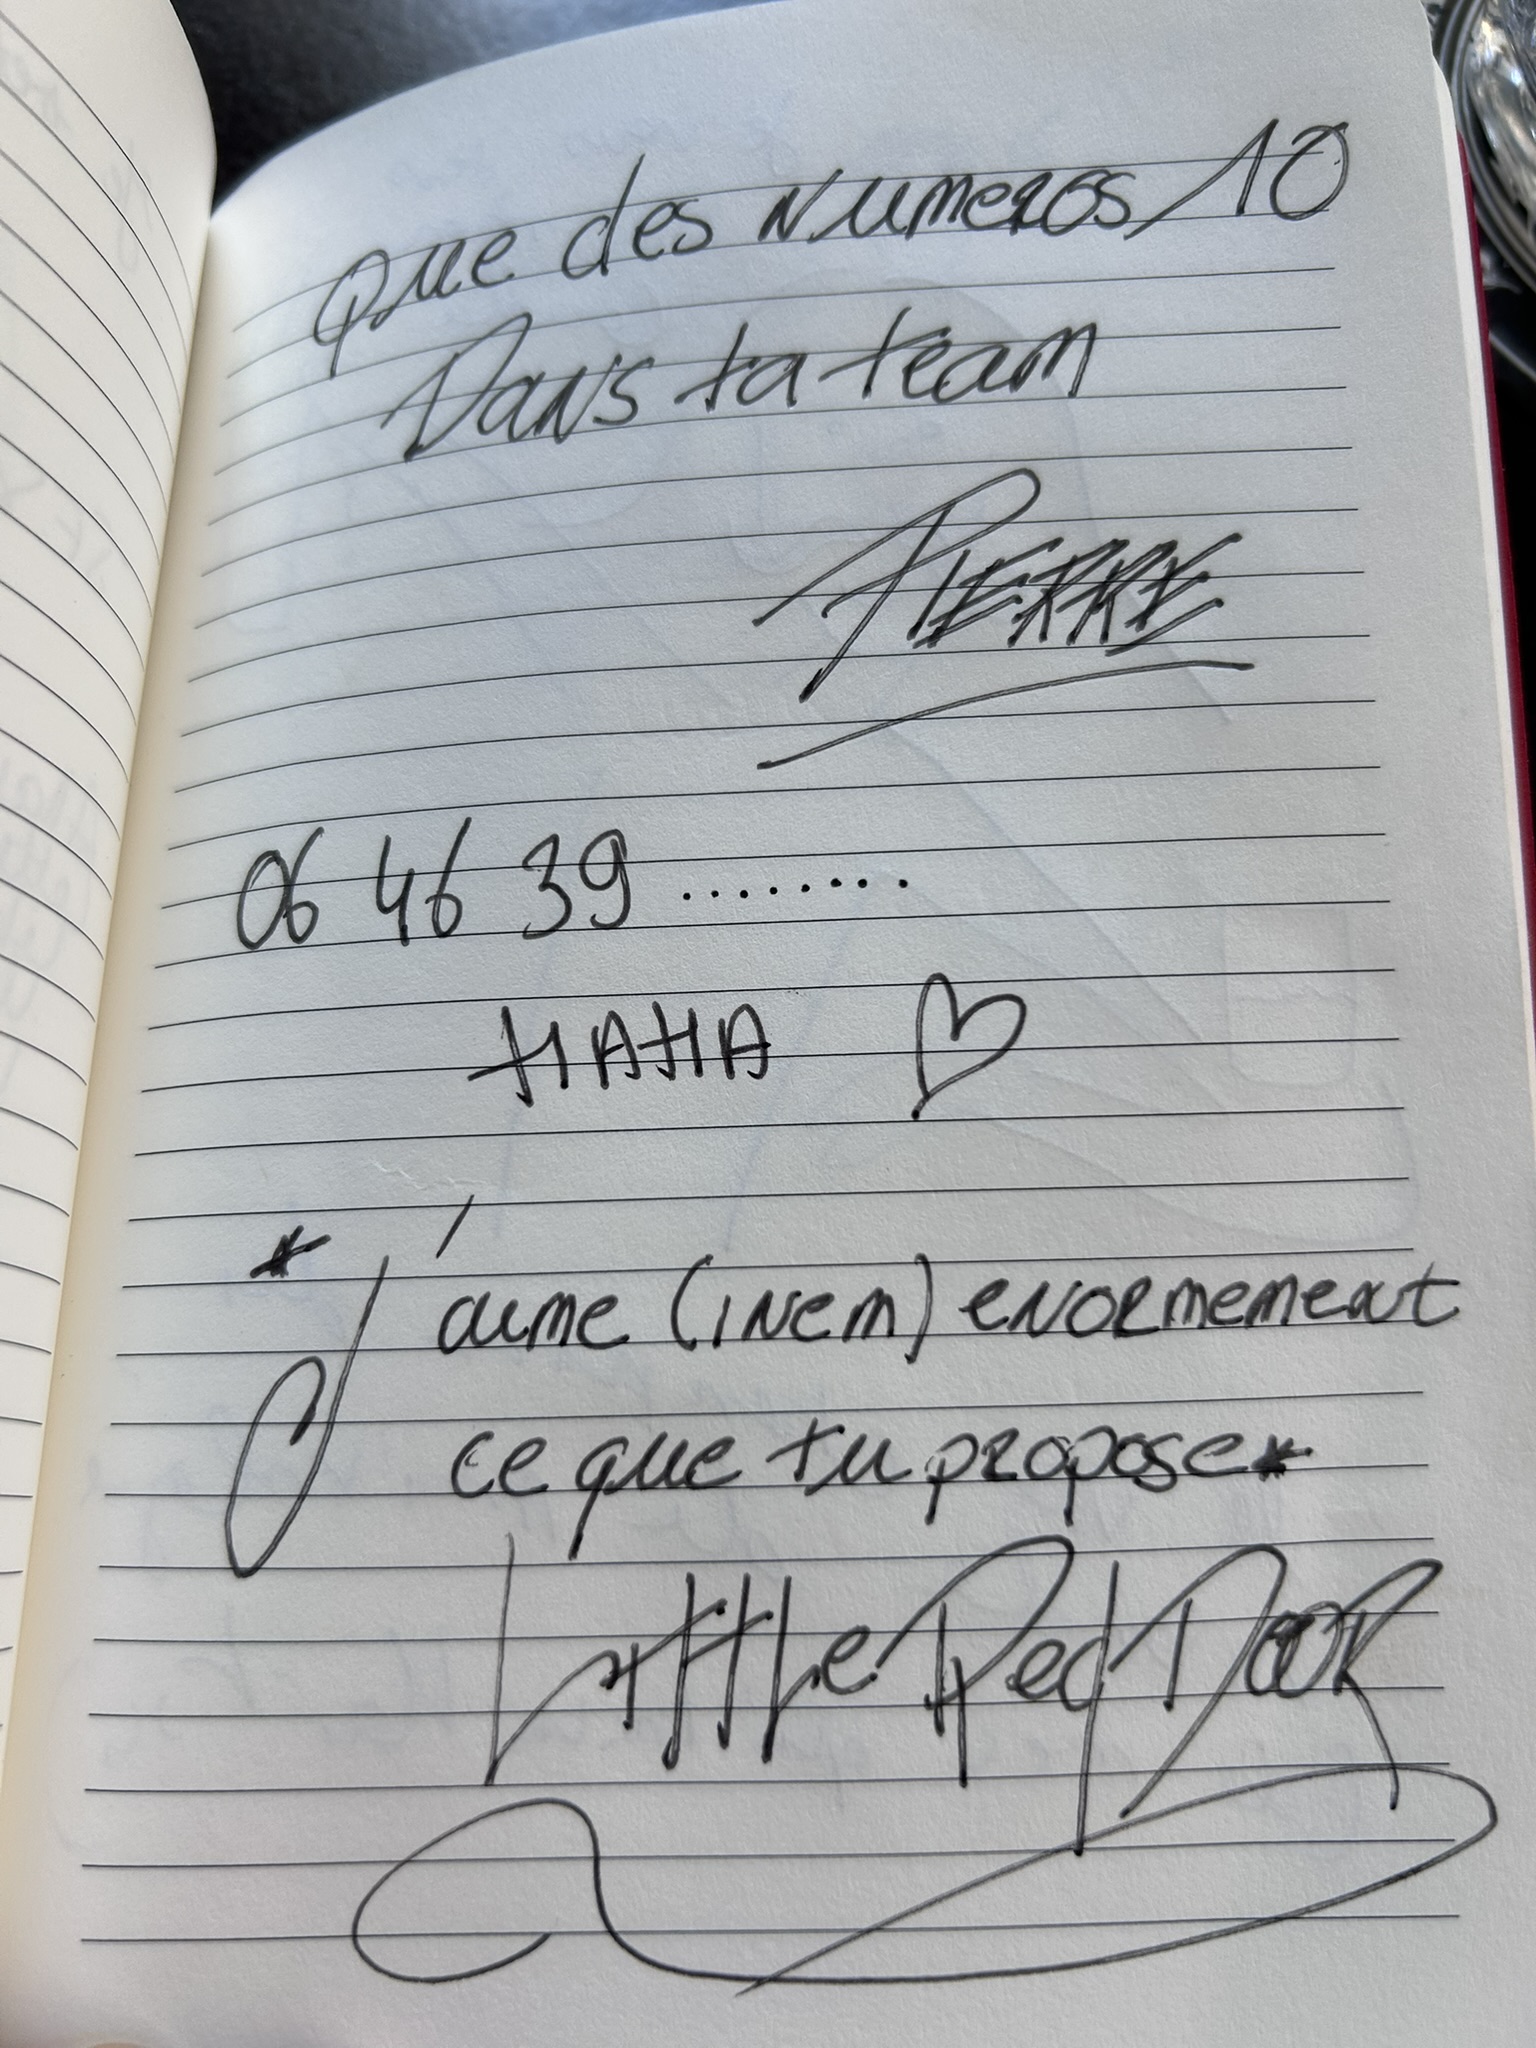 Que des Numeros 10
Dans ta team
PIERRE
06 46 39 ........
HAHA ♡
* J'aime (inem) enormement
ce que tu propose*
Little Red Door